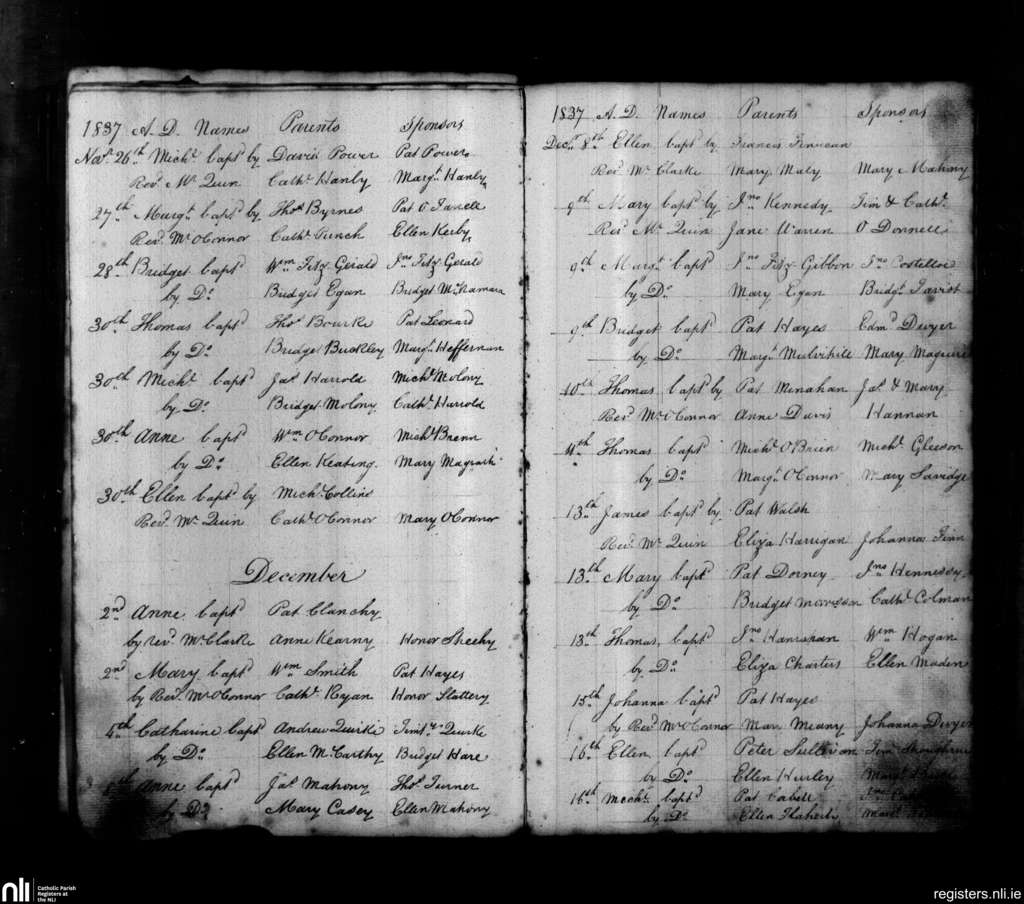 1837 A. D. Names Parents Sponsors
Novr 26th Michl bapd by David Power Pat Power
Revd Mr Quin Cathe Hanly Margt Hanly
27th Margt bapd by Thos Byrnes Pat O
Revd Mr OConnor Cathe Punch Ellen Kerby
28th Bridget bapd Wm Fitz Gerald Jno Fitz Gerald
by Do Bridget Egan Bridget McNamara
30th Thomas bapd Thos Bourke Pat Leonard
by Do Bridget Buckley Margt Heffernan
30th Michl bapd Jas Harrold Michl Molony
by Do Bridget Molony Cathe Harrold
30th Anne bapd Wm OConnor Michl
by Do Ellen Keating Mary Magrath
30th Ellen bapd by Michl Collins
Revd Mr Quin Cathe OConnor Mary OConnor
December
2nd Anne bapd Pat Clanchy
by revd Mr Clarke Anne Kearny Honor Sheehy
2nd Mary bapd Wm Smith Pat Hayes
by Revd Mr OConnor Cathe Ryan Honor Slattery
4th Catharine bapd Andrew Quirke Quirke
by Do Ellen McCarthy Bridget Hare
Anne bapd Jas Mahony Thos Turner
by Do Mary Casey Ellen Mahony
1837 A. D. Names Parents Sponsors
Decr 8th Ellen bapd by Francis Finucan
Revd Mr Clarke Mary Maly Mary Mahony
9th Mary bapd by Jno Kennedy Tim & Cathe
Revd Mr Quin Jane Warren O Donnell
9th Margt bapd Jno Fitz Gibbon Jno Costelloe
by Do Mary Egan Bridgt
9th Bridget bapd Pat Hayes Edmd Dwyer
by Do Margt Mulvihile Mary Maguire
10th Thomas bapd by Pat Minahan Jas & Mary
Revd Mr OConnor Anne Davis Hannan
11th Thomas bapd Michl OBrien Michl Gleeson
by Do Margt OConnor Mary Savidge
13th James bapd by Pat Walsh
Revd Mr Quin Eliza Harrigan Johanna Finn
13th Mary bapd Pat Dorney Jno Hennessy
by Do Bridget Morrisson Cathe Colman
13th Thomas bapd Jno Hanrahan Wm Hogan
by Do Eliza Charters Ellen Maden
15th Johanna bapd Pat Hayes
by Revd Mr OConnor Mar. Meany Johanna Dwyer
16th Ellen bapd Peter Sullivan
by Do Ellen Hurley Margt
16th Michl bapd Pat Cahill
by Do Ellen Flaherty Margt
nli Catholic Parish
Registers at
the NLI
registers.nli.ie